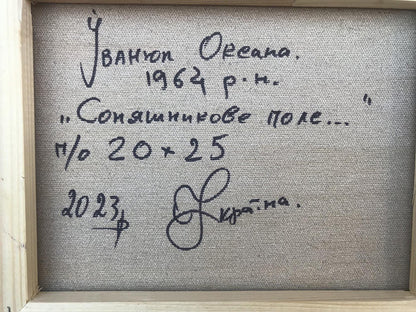 Іванюк Оксана.
1964 р.н.
„Соняшникове поле..."
п/о 20 x 25
2023р Україна.